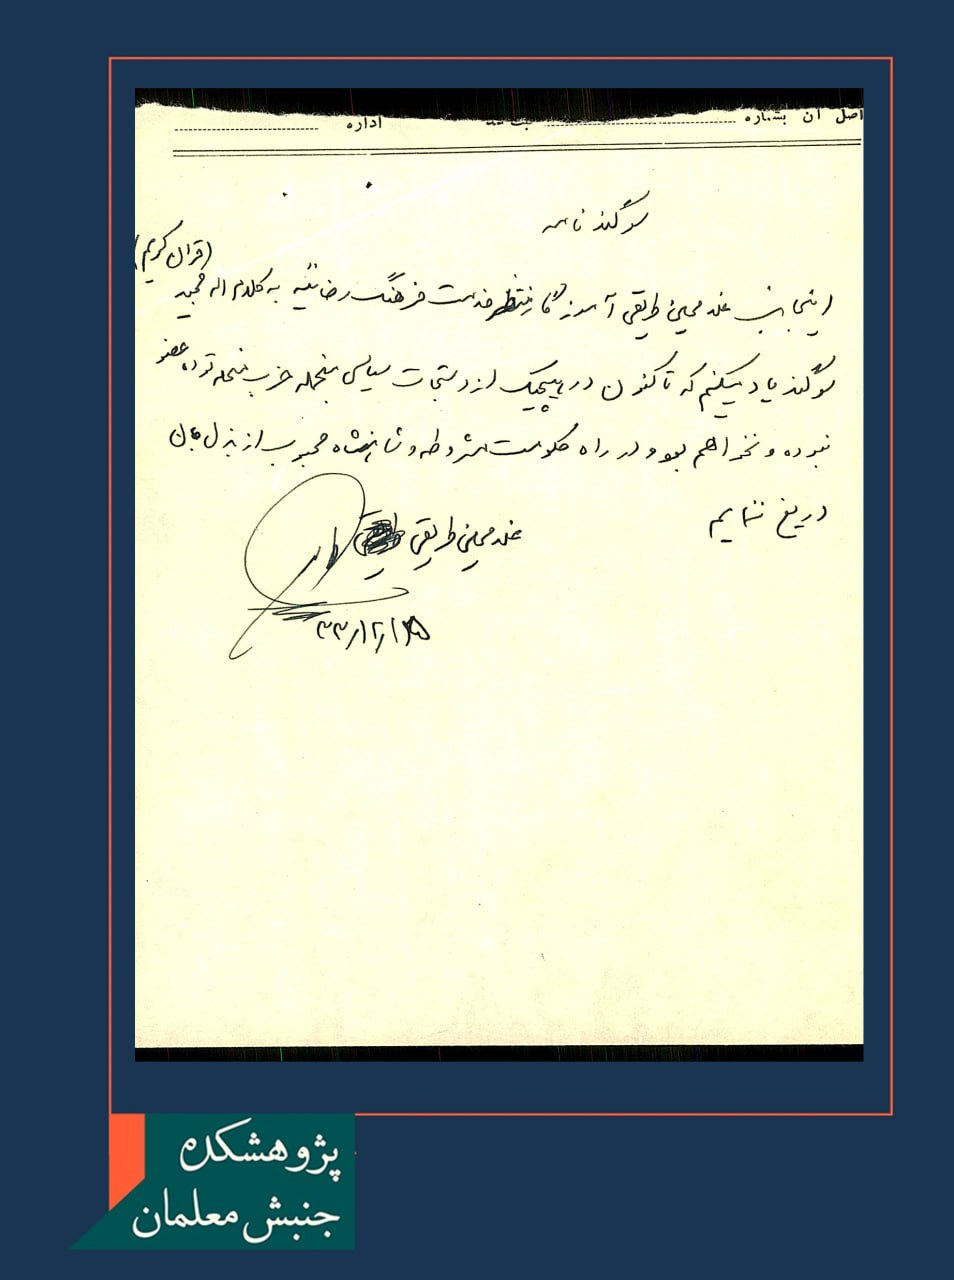 اصل آن بشماره ثبت شد اداره
سوگند نامه
(قرآن کریم)
اینجانب غلامحسین طریقی آموزگار منتظر خدمت فرهنگ رضائیه به کلام اله مجید
سوگند یاد میکنم که تاکنون در هیچیک از دستجات سیاسی منجمله حزب منحله توده عضو
نبوده و نخواهم بود و در راه حکومت مشروطه و شاهنشاه محبوب از بذل جان
دریغ ننمایم
غلامحسین طریقی
پژوهشکده
جنبش معلمان